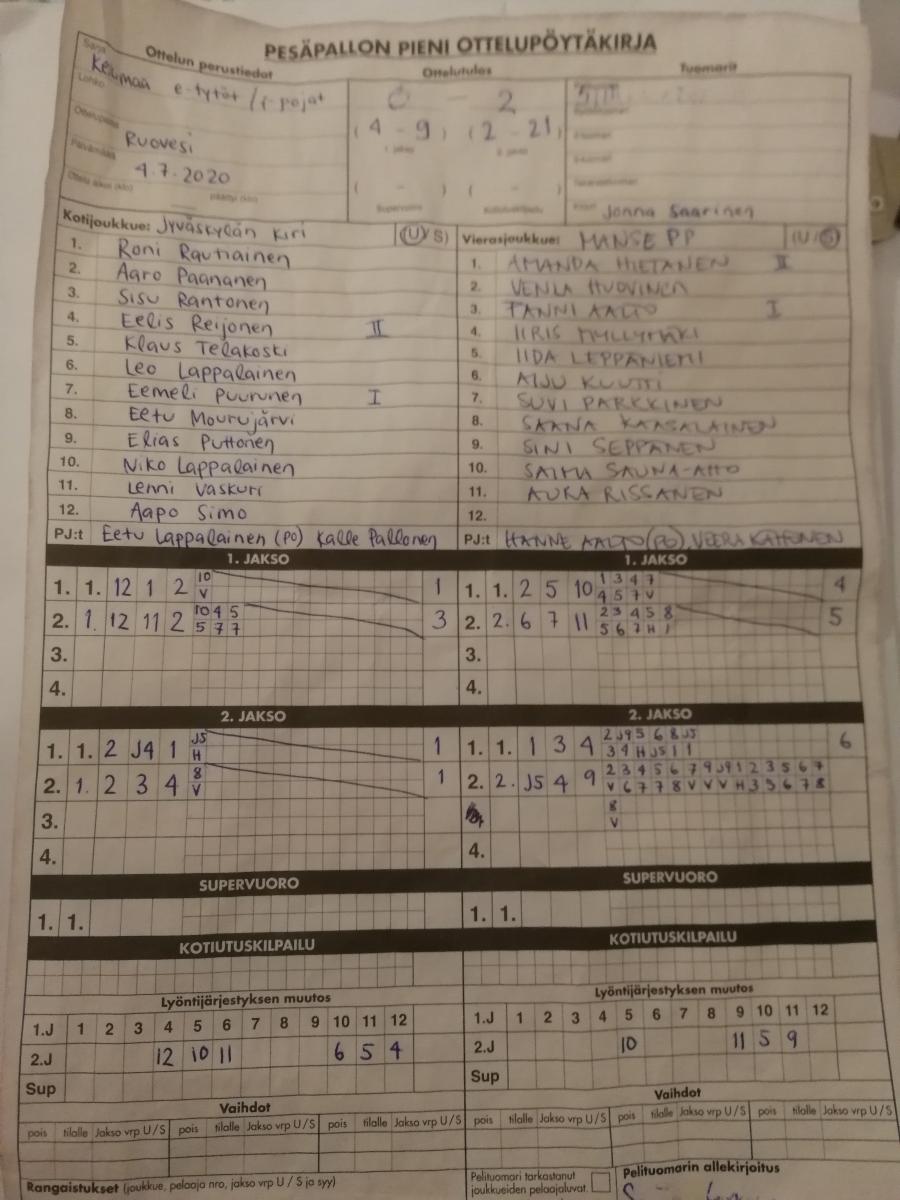 PESÄPALLON PIENI OTTELUPÖYTÄKIRJA
Sarja Ottelun perustiedot Ottelutulos Tuomarit
Lohko e-tytöt / f-pojat 0 - 2
Ottelupaikka Ruovesi (4 - 9) (2 - 21)
Päivämäärä 4.7.2020
Ottelu alkoi (klo) päättyi (klo) ( - ) ( - )
Supervuoro Kotiutuskilpailu Jonna Saarinen
Kotijoukkue: Jyväskylän Kiri (U/S) Vierasjoukkue: MANSE PP (U/S)
1. Roni Rautiainen 1. AMANDA HIETANEN II
2. Aaro Paananen 2. VENLA HUOVINEN
3. Sisu Rantonen 3. FANNI AALTO I
4. Eelis Reijonen II 4. IIRIS MYLLYMÄKI
5. Klaus Telakoski 5. IIDA LEPPÄNIEMI
6. Leo Lappalainen 6. AIJU KUUTTI
7. Eemeli Puurunen I 7. SUVI PARKKINEN
8. Eetu Mourujärvi 8. SAANA KAASALAINEN
9. Elias Puttonen 9. SINI SEPPÄNEN
10. Niko Lappalainen 10. SAIMA SAUNA-AHO
11. Lenni Vaskuri 11. AURA RISSANEN
12. Aapo Simo 12.
PJ:t Eetu Lappalainen (PO) Kalle Pallonen PJ:t HANNE AALTO (PO), VEERA KAHTONEN
1. JAKSO 1. JAKSO
1. 1. 12 1 2 10 1 1. 1. 2 5 10 1 3 4 7 4
V 4 5 7 V
2. 1. 12 11 2 10 4 5 3 2. 2. 6 7 11 2 3 4 5 8 5
5 7 7 5 6 7 H 1
3. 3.
4. 4.
2. JAKSO 2. JAKSO
1. 1. 2 J4 1 J5 1 1. 1. 1 3 4 2 J9 5 6 8 J5 6
H 3 4 H J5 1 1
2. 1. 2 3 4 8 1 2. 2. J5 4 9 2 3 4 5 6 7 9 J9 1 2 3 5 6 7
V V 6 7 7 8 V V V H 3 5 6 7 8
3. 8
V
4. 4.
SUPERVUORO SUPERVUORO
1. 1. 1. 1.
KOTIUTUSKILPAILU KOTIUTUSKILPAILU
Lyöntijärjestyksen muutos Lyöntijärjestyksen muutos
1.J 1 2 3 4 5 6 7 8 9 10 11 12 1.J 1 2 3 4 5 6 7 8 9 10 11 12
2.J 12 10 11 6 5 4 2.J 10 11 5 9
Sup Sup
Vaihdot Vaihdot
pois tilalle Jakso vrp U/S pois tilalle Jakso vrp U/S pois tilalle Jakso vrp U/S pois tilalle Jakso vrp U/S pois tilalle Jakso vrp U/S pois tilalle Jakso vrp U/S
Rangaistukset (joukkue, pelaaja nro, jakso vrp U / S ja syy) Pelituomari tarkastanut Pelituomarin allekirjoitus
joukkueiden pelaajaluvat.